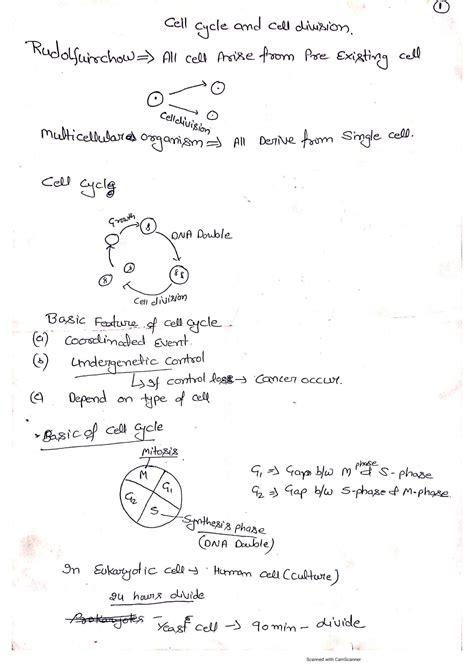 1
Cell cycle and cell division.
Rudolfuirchow ⇒ All cell Arise from Pre Existing cell
Cell division
Multicellular organism ⇒ All Derive from Single cell.
Cell cycle
Growth
DNA Double
Cell division
Basic Feature of cell cycle
(a) Coordinated Event.
(b) Undergenetic Control
↳ If control loss → Cancer occur.
(c) Depend on type of cell
Basic of Cell Cycle
Mitosis
M
G1
G2
S
G1 ⇒ Gap b/w M phase & S-phase
G2 ⇒ Gap b/w S-phase & M-phase
Synthesis phase
(DNA Double)
In Eukaryotic cell → Human cell (culture)
24 hours divide
Prokaryotes Yeast cell → 90 min - divide
Scanned with CamScanner